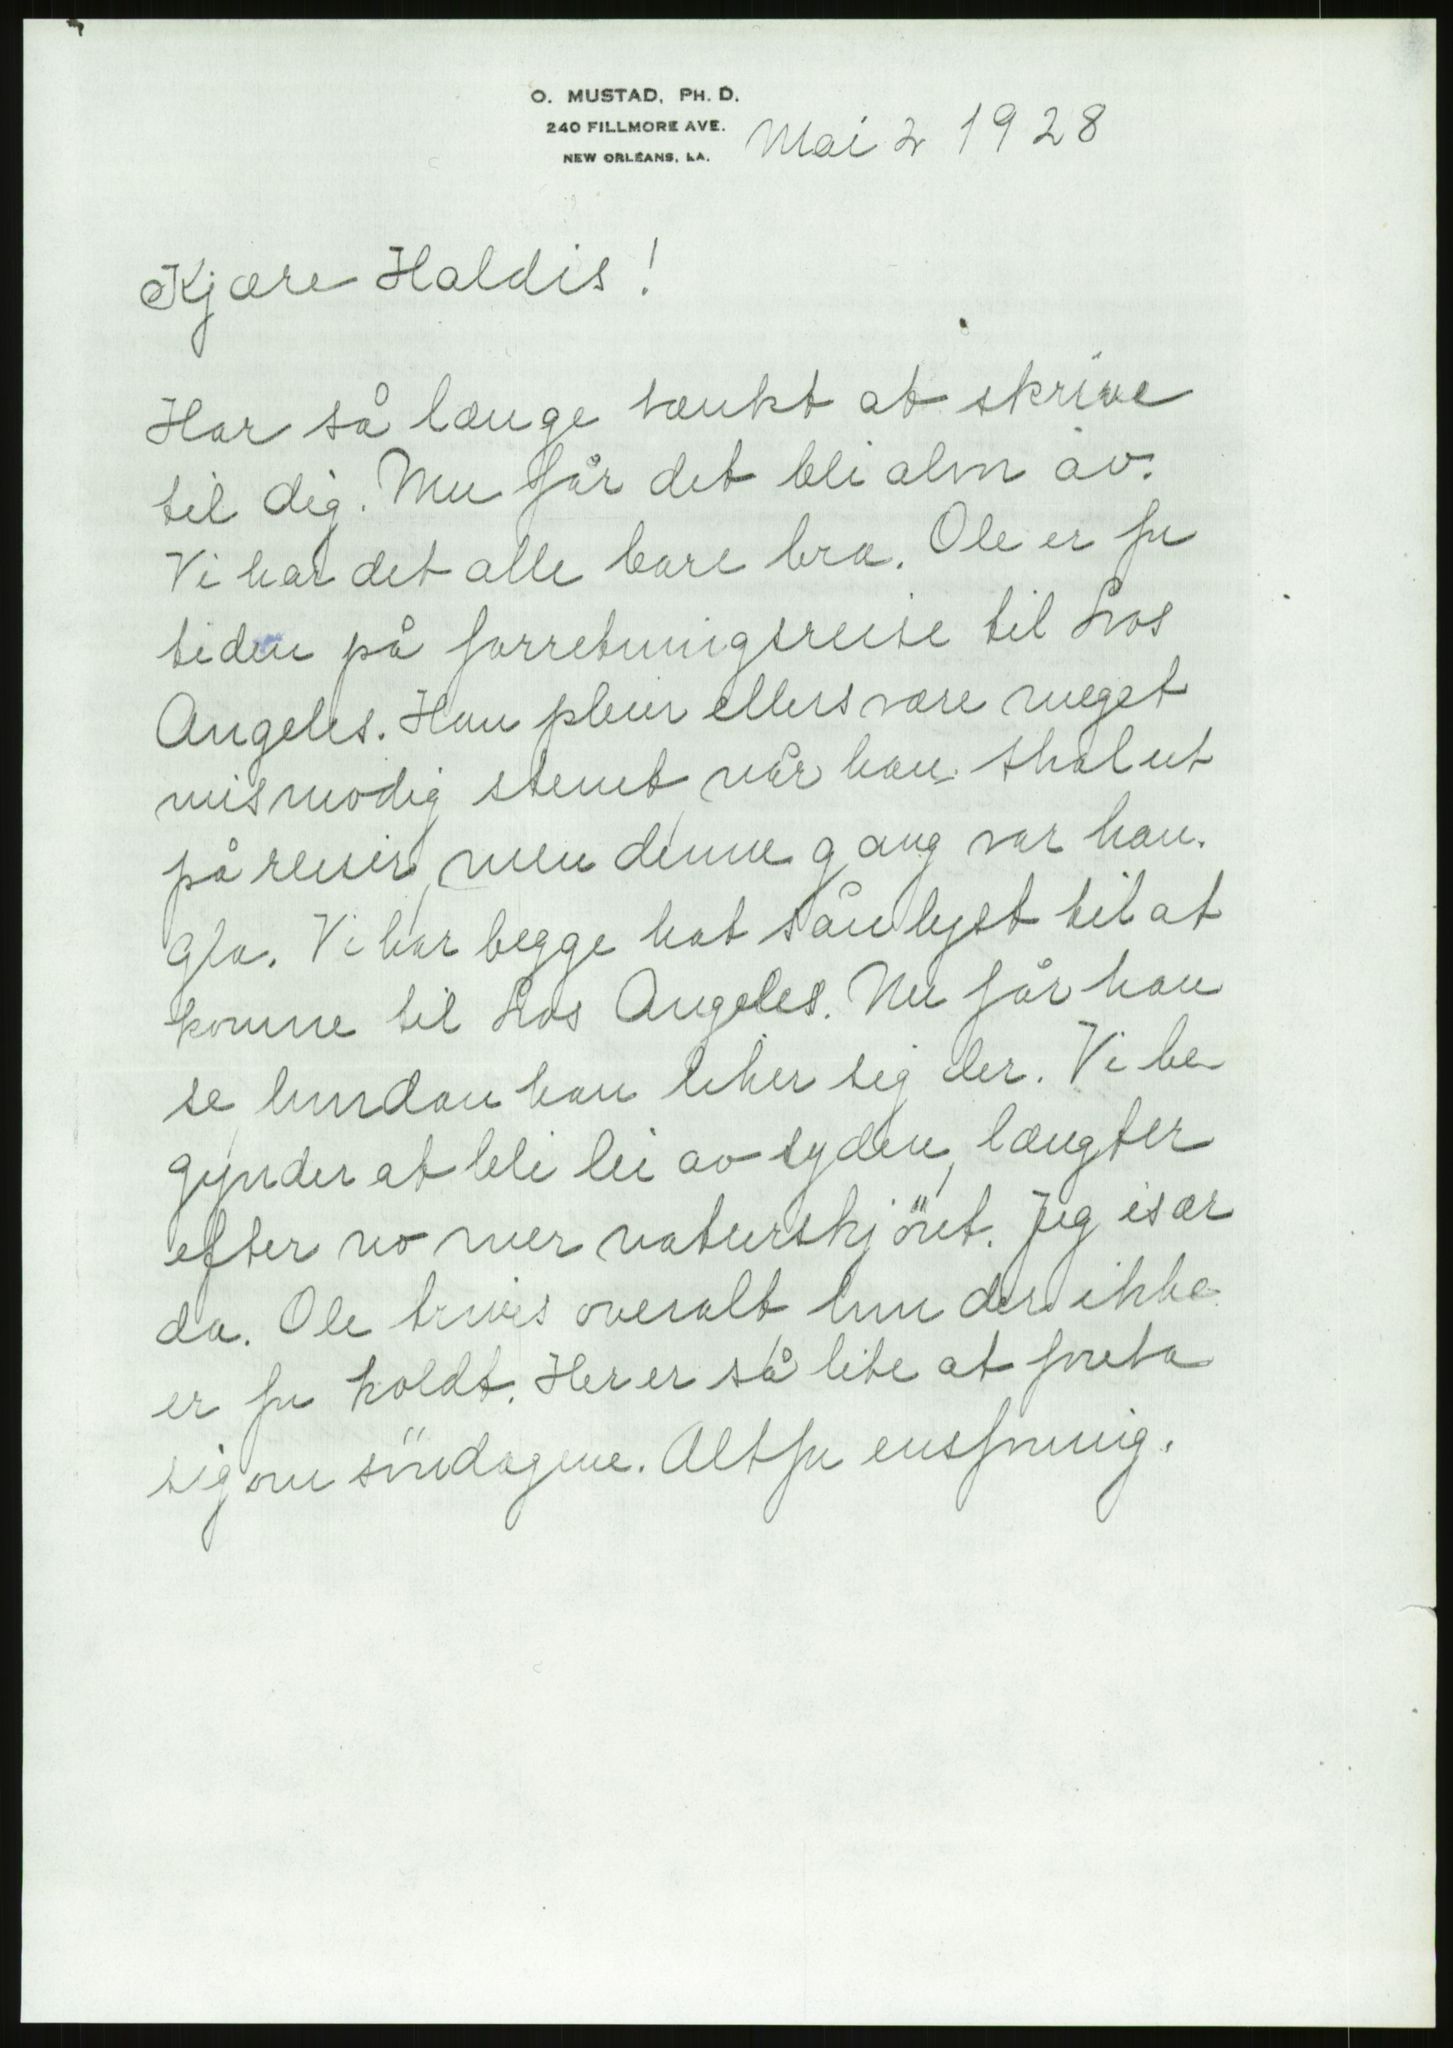 O. MUSTAD, PH. D.
240 FILLMORE AVE.
NEW ORLEANS, LA.
Mai 2 1928
Kjære Haldis!
Har så længe tænkt at skrive
til dig. Nu får det bli alvor av.
Vi har det alle bare bra. Ole er for
tiden på forretningsreise til Los
Angeles. Han pleier ellers være meget
mismodig stemt, når han skal ut
på reiser, men denne gang var han
gla. Vi har begge hat sån lyst til at
komme til Los Angeles. Nu får han
se hvordan han liker sig der. Vi be
gynder at bli lei av syden, længter
efter no mer naturskjönt. Jeg især
da. Ole trives overalt hvor der ikke
er for koldt. Her er så lite at foreta
sig om söndagene. Altfor ensformig.